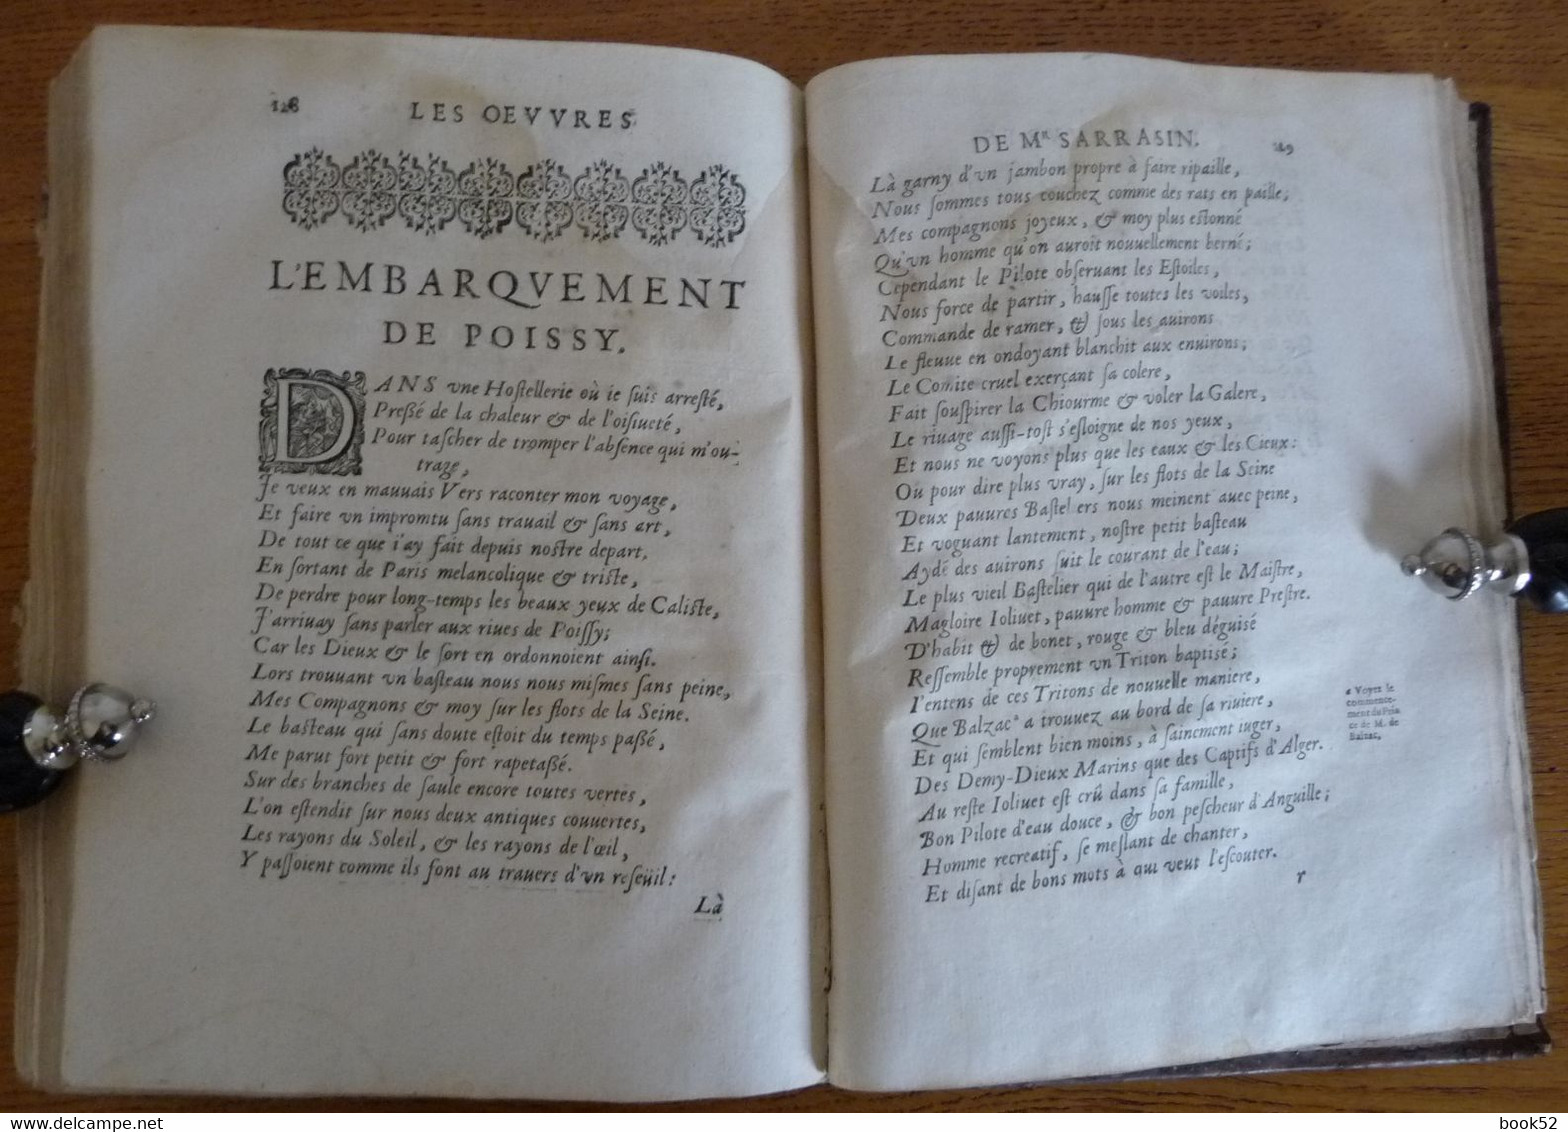 128 LES OEVVRES
L'EMBARQVEMENT
DE POISSY.
DANS vne Hostellerie où ie suis arresté,
Pressé de la chaleur & de l'oisiueté,
Pour tascher de tromper l'absence qui m'ou-
trage,
Je veux en mauuais Vers raconter mon voyage,
Et faire vn impromtu sans trauail & sans art,
De tout ce que i'ay fait depuis nostre depart.
En sortant de Paris melancolique & triste,
De perdre pour long-temps les beaux yeux de Caliste,
J'arriuay sans parler aux riues de Poissy;
Car les Dieux & le sort en ordonnoient ainsi.
Lors trouuant vn basteau nous nous mismes sans peine,
Mes Compagnons & moy sur les flots de la Seine.
Le basteau qui sans doute estoit du temps passé,
Me parut fort petit & fort rapetassé.
Sur des branches de saule encore toutes vertes,
L'on estendit sur nous deux antiques couuertes,
Les rayons du Soleil, & les rayons de l'œil,
Y passoient comme ils font au trauers d'vn reseüil:
Là
DE Mr. SARRASIN. 129
Là garny d'vn jambon propre à faire ripaille,
Nous sommes tous couchez comme des rats en paille;
Mes compagnons joyeux, & moy plus estonné
Qu'vn homme qu'on auroit nouuellement berné;
Cependant le Pilote obseruant les Estoiles,
Nous force de partir, hausse toutes les voiles,
Commande de ramer, & sous les auirons
Le fleuue en ondoyant blanchit aux enuirons;
Le Comite cruel exerçant sa colere,
Fait souspirer la Chiourme & voler la Galere,
Le riuage aussi-tost s'esloigne de nos yeux,
Et nous ne voyons plus que les eaux & les Cieux:
Ou pour dire plus vray, sur les flots de la Seine
Deux pauures Bastel ers nous meinent auec peine,
Et voguant lantement, nostre petit basteau
Aydé des auirons suit le courant de l'eau;
Le plus vieil Bastelier qui de l'autre est le Maistre,
Magloire Ioliuet, pauure homme & pauure Prestre.
D'habit & de bonet, rouge & bleu déguisé
Ressemble proprement vn Triton baptisé;
I'entens de ces Tritons de nouuelle maniere,
Que Balzac a a trouuez au bord de sa riuiere,
Et qui semblent bien moins, à sainement iuger,
Des Demy-Dieux Marins que des Captifs d'Alger.
Au reste Ioliuet est crû dans sa famille,
Bon Pilote d'eau douce, & bon pescheur d'Anguille;
Homme recreatif, se meslant de chanter,
Et disant de bons mots à qui veut l'escouter.
r
a Voyez le
commence-
ment du Prin-
ce de M. de
Balzac.
delcampe.net
book52